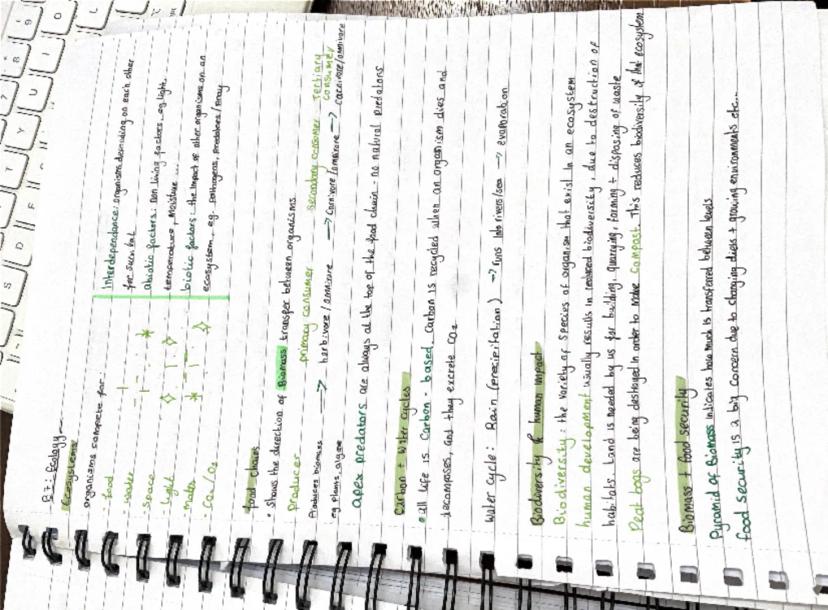 B7: Ecology
Ecosystems
organisms compete for
- food
- water
- space
- light
- mates
- CO₂ / O₂
Interdependence: organisms depending on each other
for survival
abiotic factors: non living factors. eg light,
temperature, moisture ...
biotic factors: the impact of other organisms on an
ecosystem. eg. pathogens, predators / prey
food chains
• shows the direction of Biomass transfer between organisms
producer → primary consumer → secondary consumer → Tertiary consumer
Produces biomass herbivore / omnivore carnivore / omnivore carnivore / omnivore
eg plants, algae
apex predators are always at the top of the food chain - no natural predators
Carbon + Water cycles
• all life is Carbon - based. Carbon is recycled when an organism dies and
decomposes, and they excrete CO₂
Water cycle: Rain (precipitation) → runs into rivers/sea → evaporation
Biodiversity & human impact
Biodiversity: the variety of species of organism that exist in an ecosystem
human development usually results in reduced biodiversity, due to destruction of
habitats. Land is needed by us for building, quarying, farming + disposing of waste
Peat bogs are being destroyed in order to make compost. This reduces biodiversity of that ecosystem
Biomass + food security
Pyramid of Biomass indicates how much is transferred between levels
food security is a big concern due to changing diets + growing environments etc...